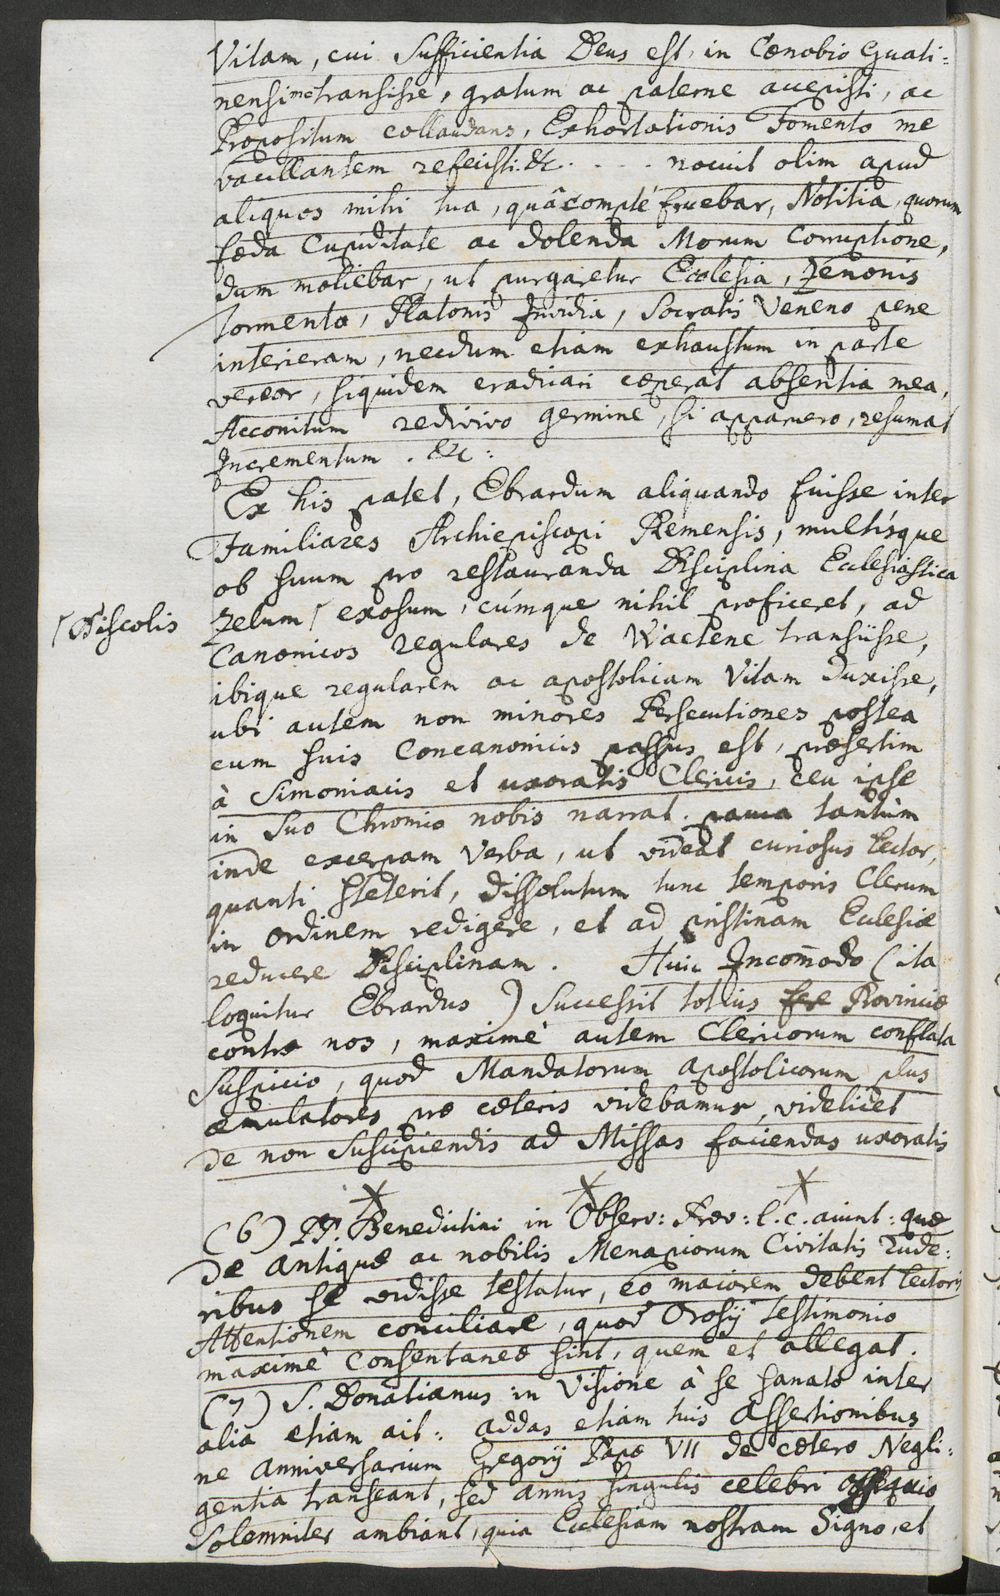 Vitam, cui Sufficientia Deus est, in Cœnobio Guati=
nensi me transisse, gratum ac paterne accepisti, ac
Propositum collaudans, Exhortationis Fomento me
vacillantem refecisti. &c. . . . . nocuit olim apud
aliquos mihi tua, quâ comptè fruebar, Notitia, quorum
fœda Cupiditate ac dolenda Morum Corruptione,
dum moliebar, ut purgaretur Ecclesia, Zenonis
tormento, Platonis Invidia, Socratis Veneno pene
interieram, necdum etiam exhaustum in parte
vereor, siquidem eradicari cœperat absentia mea,
Acconitum redivivo germine, si apparuero, resumat
Incrementum. &c:
Ex his patet, Ebrardum aliquando fuisse inter
Familiares Archiepiscopi Remensis, multisque
ob suum pro restauranda Disciplina Ecclesiastica
/ Discolis
zelum / exosum, cúmque nihil proficeret, ad
Canonicos regulares de Wactene transiisse,
ibique regularem ac apostolicam Vitam duxisse,
ubi autem non minores Persecutiones postea
cum suis Concanonicis passus est, præsertim
à Simoniacis et uxoratis Clericis, ceu ipse
in Suo Chronico nobis narrat. pauca tantùm
inde excerpam Verba, ut videat curiosus Lector,
quanti steterit, dissolutum tunc temporis Clerum
in ordinem redigere, et ad pristinam Ecclesiæ
reducere Disciplinam. Huic Incom̄odo (ita
loquitur Ebrardus) Successit totius fere Provinciæ
contra nos, maximè autem Clericorum conflata
Suspicio, quod Mandatorum apostolicorum plus
æmulatores præ cæteris videbamur, videlicet
de non Suscipiendis ad Missas faciendas uxoratis
(6) PP. Benedictini in Observ: Præv: l. c. aiunt: quæ
de antiquæ ac nobilis Menapiorum Civitatis Rude=
ribus se vidisse testatur, eo maiorem debent Lectoris
Attentionem conciliare, quod Orosij testimonio
maximè Consentanea sint, quem et allegat.
(7) S. Donatianus in Visione à se sanato inter
alia etiam ait: addas etiam tuis assertionibus
ne anniversarium Gregorij Papæ VII de cætero Negli=
gentia transeant, sed annis singulis celebri obsequio
Solemniter ambiant, quia Ecclesiam nostram Signo, et